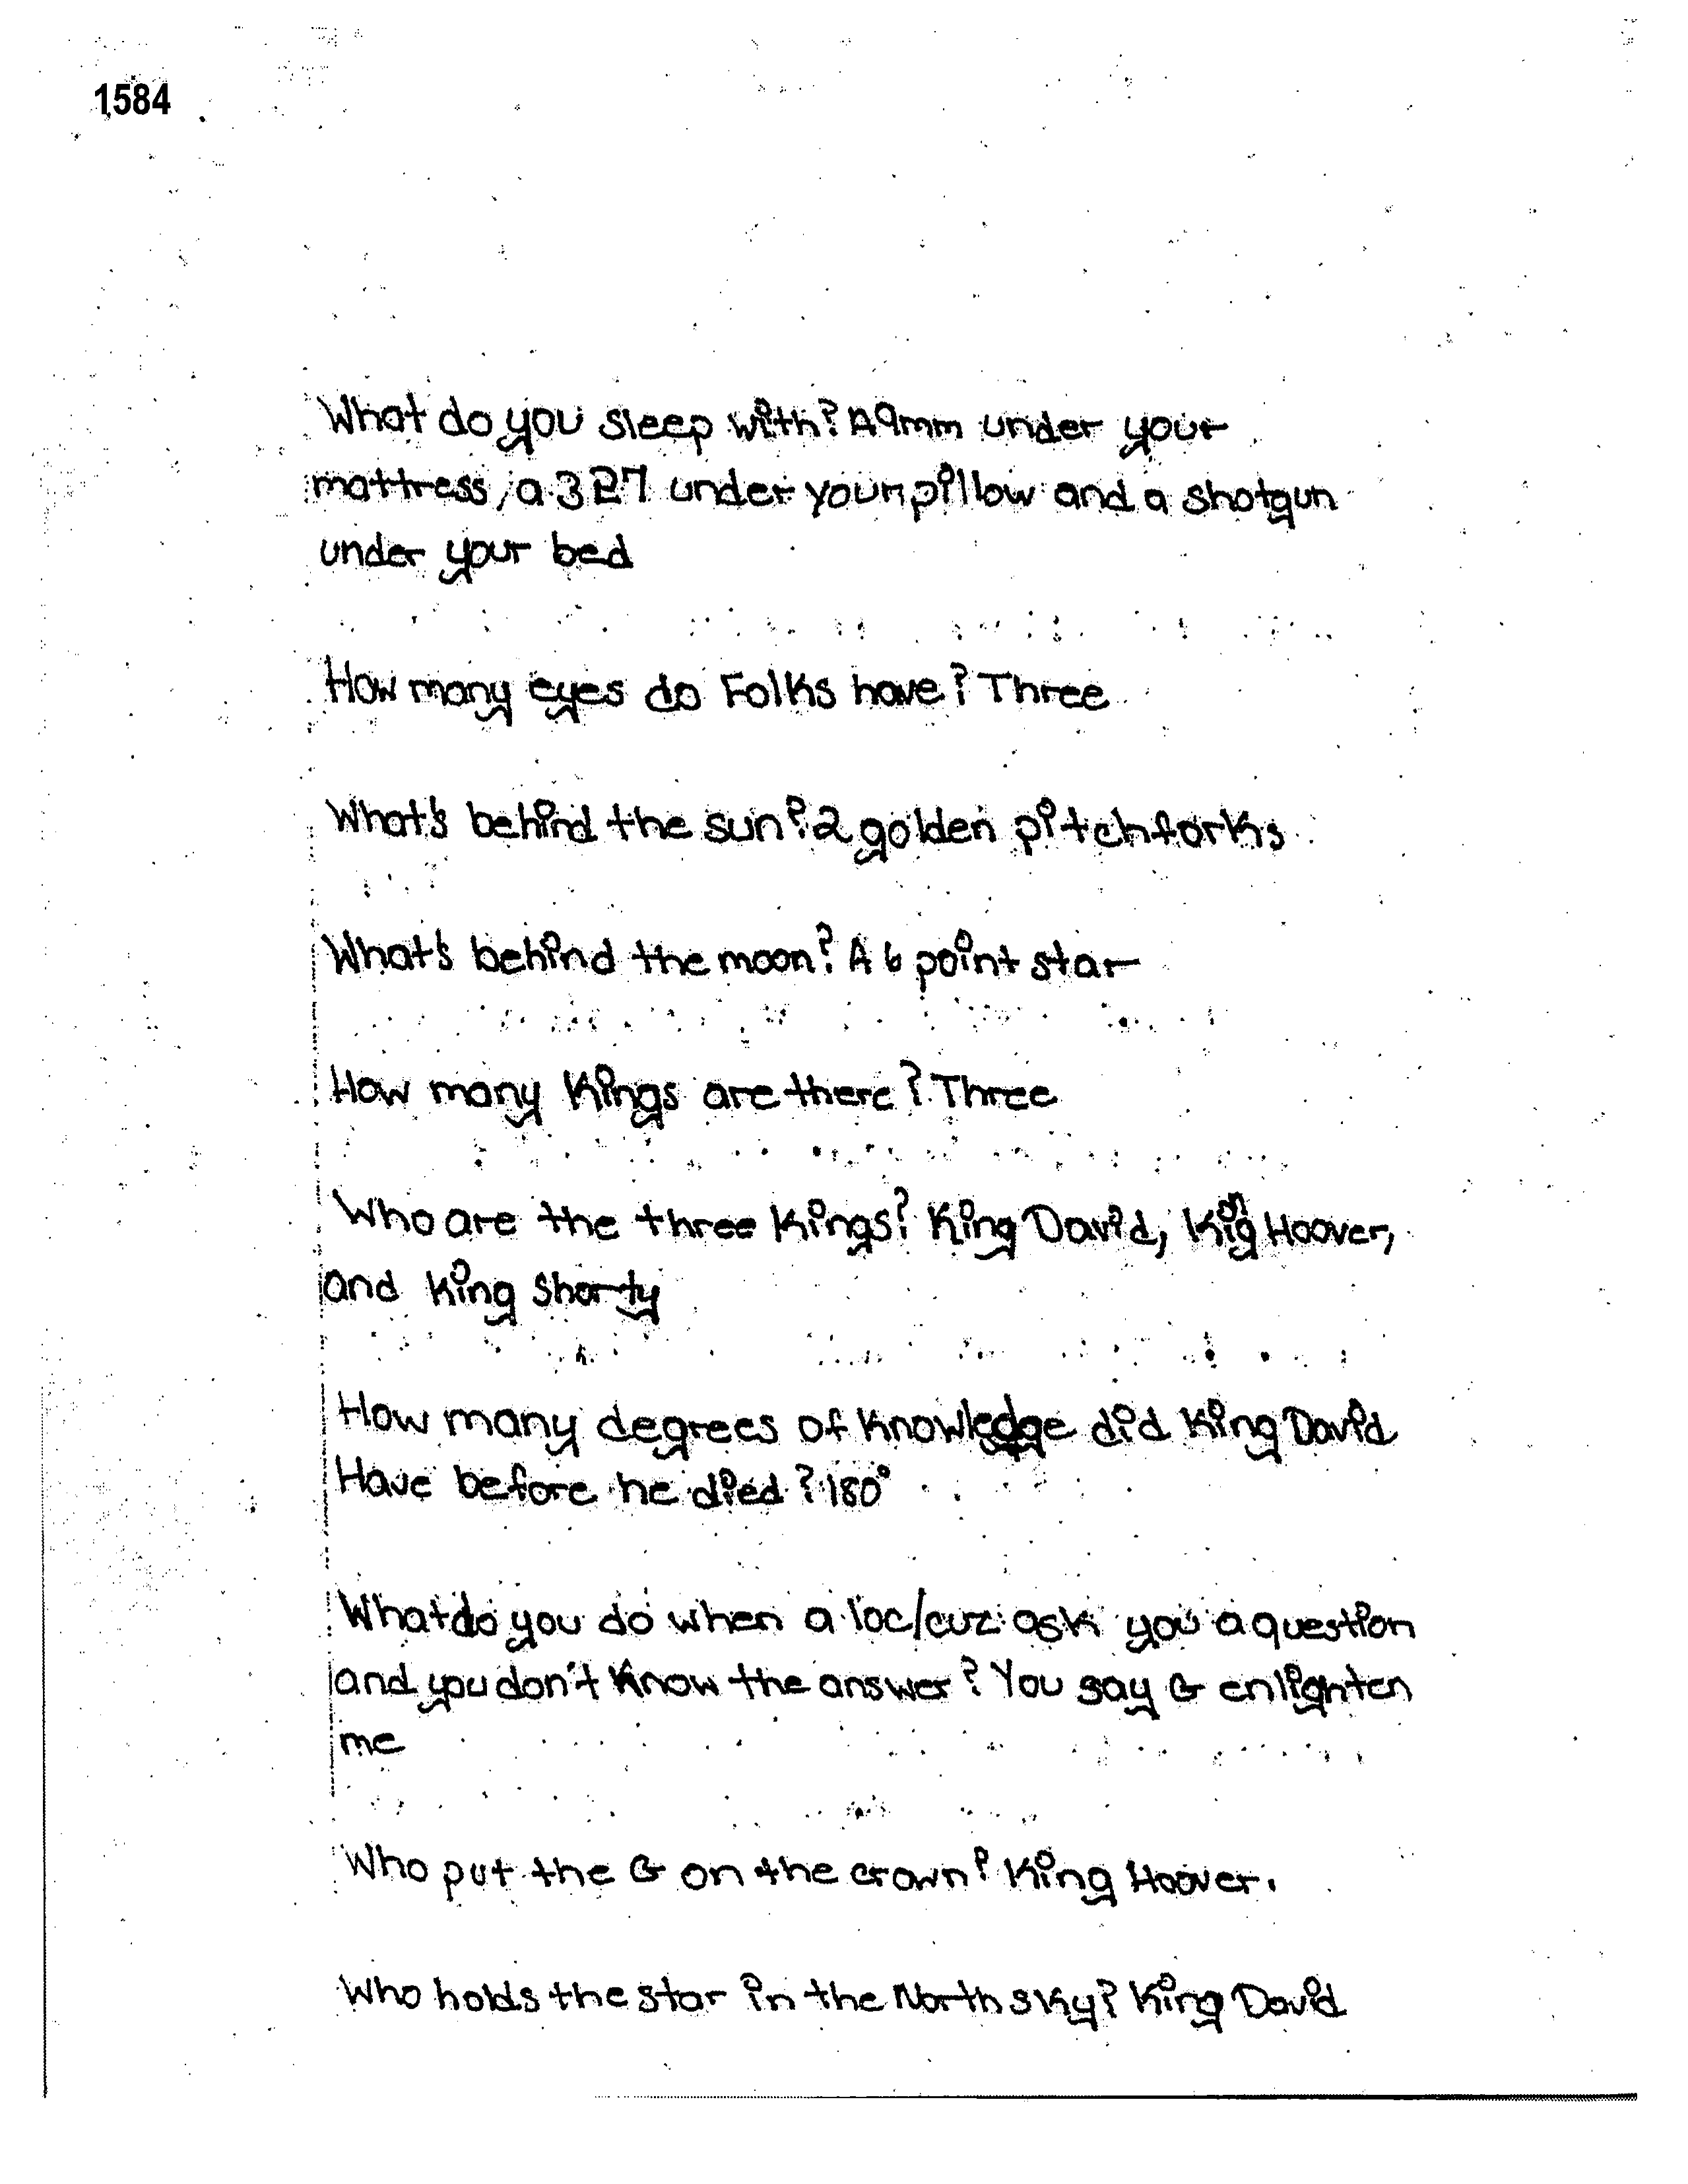 1584
What do you sleep with? A 9mm under your
mattress, a 327 under your pillow and a shotgun
under your bed
How many eyes do Folks have? Three
What's behind the sun? 2 golden pitchforks
What's behind the moon? A 6 point star
How many Kings are there? Three
Who are the three Kings? King David, King Hoover,
and King Shorty
How many degrees of Knowledge did King David
Have before he died? 180°
What do you do when a loc/cuz ask you a question
and you don't Know the answer? You say G enlighten
me
Who put the G on the crown? King Hoover.
Who holds the star in the North sky? King David